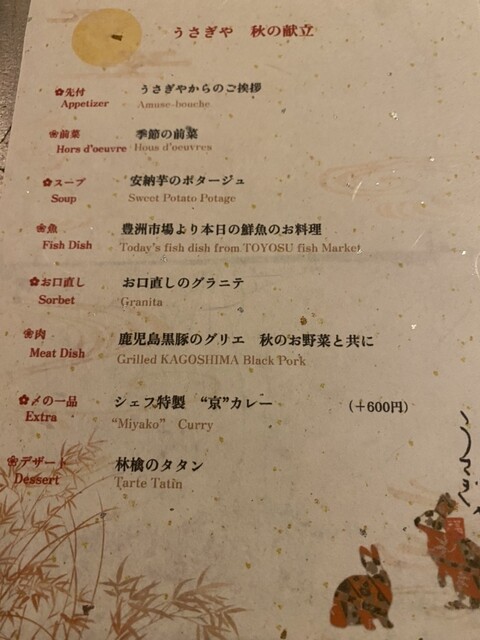 うさぎや 秋の献立
✿先付 うさぎやからのご挨拶
Appetizer Amuse-bouche
❀前菜 季節の前菜
Hors d'oeuvre Hous d'oeuvres
✿スープ 安納芋のポタージュ
Soup Sweet Potato Potage
❀魚 豊洲市場より本日の鮮魚のお料理
Fish Dish Today's fish dish from TOYOSU fish Market
✿お口直し お口直しのグラニテ
Sorbet Granita
❀肉 鹿児島黒豚のグリエ 秋のお野菜と共に
Meat Dish Grilled KAGOSHIMA Black Pork
✿〆の一品 シェフ特製 “京”カレー (+600円)
Extra “Miyako” Curry
❀デザート 林檎のタタン
Dessert Tarte Tatin
うさぎ